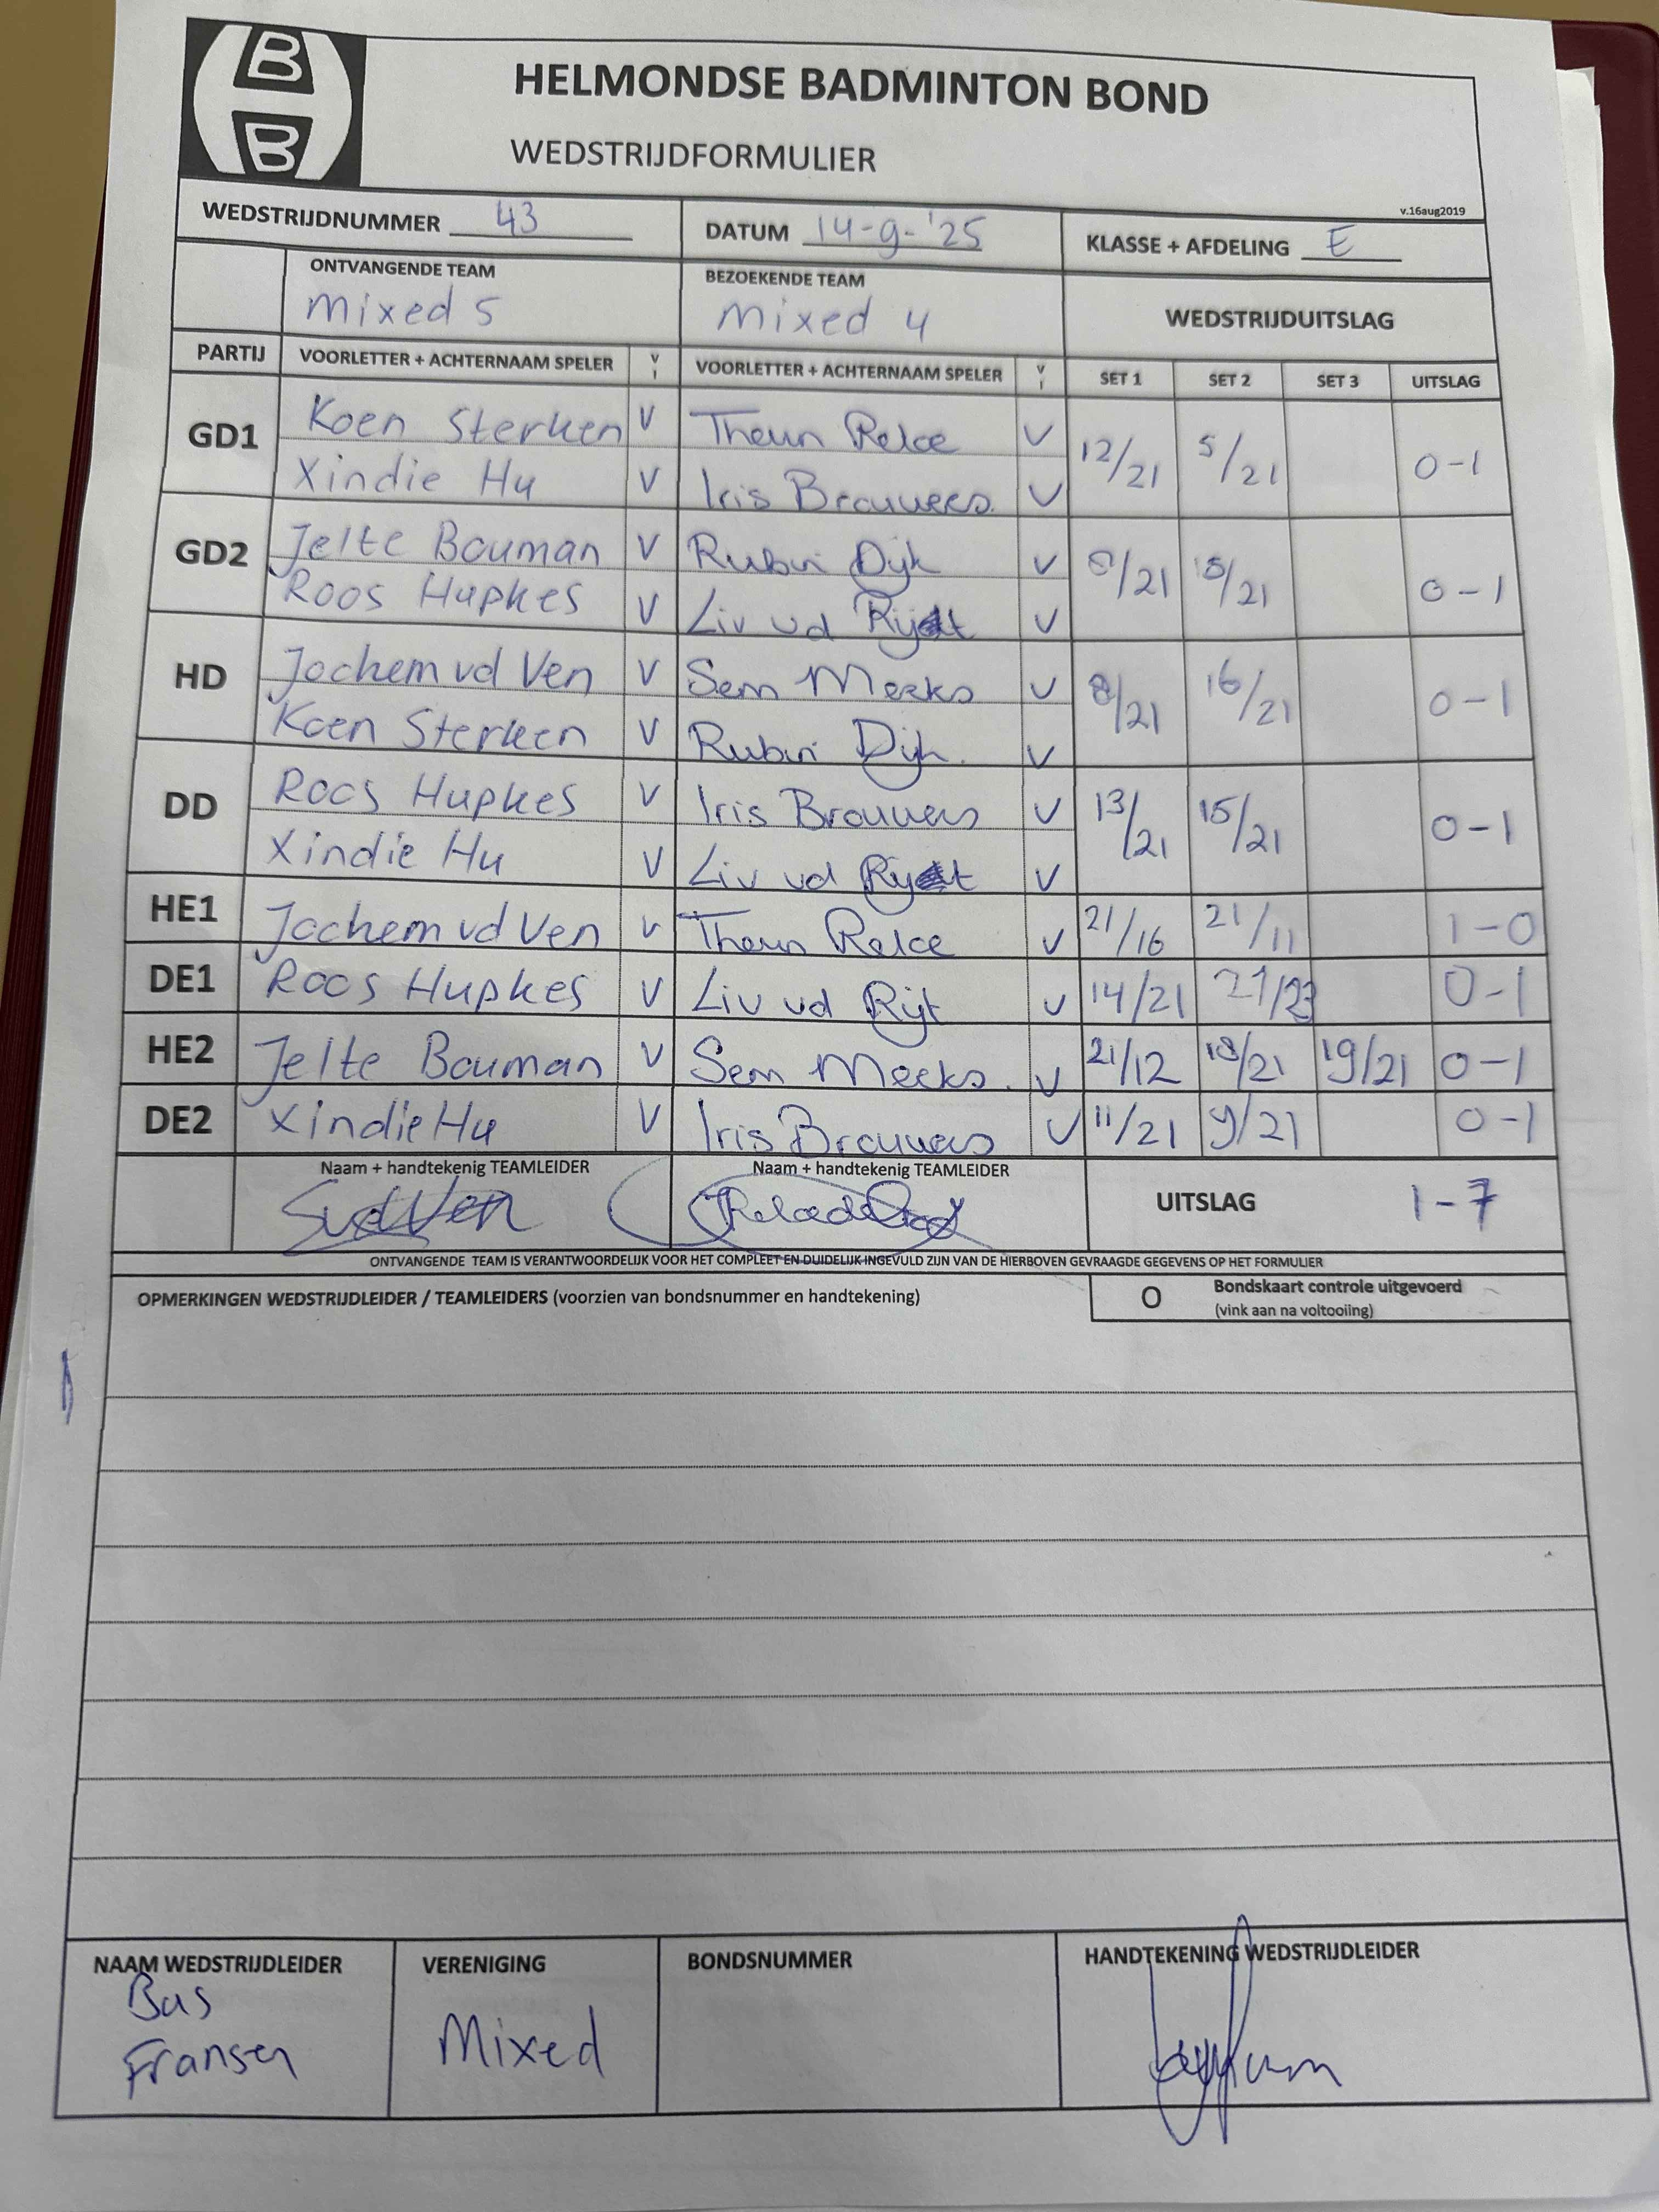 B
B
HELMONDSE BADMINTON BOND
WEDSTRIJDFORMULIER
v.16aug2019
WEDSTRIJDNUMMER 43 DATUM 14-9-'25 KLASSE + AFDELING E
ONTVANGENDE TEAM BEZOEKENDE TEAM WEDSTRIJDUITSLAG
Mixed 5 Mixed 4
PARTIJ VOORLETTER + ACHTERNAAM SPELER V I VOORLETTER + ACHTERNAAM SPELER V I SET 1 SET 2 SET 3 UITSLAG
GD1 Koen Sterken V Theun Relce V 12/21 5/21 0-1
Xindie Hu V Iris Brouwers. V
GD2 Jelte Bouman V Rubin Dijk V 8/21 15/21 0-1
Roos Hupkes V Liv vd Rijt V
HD Jochem vd Ven V Sem Meeks V 8/21 16/21 0-1
Koen Sterken V Rubin Dijk. V
DD Roos Hupkes V Iris Brouwers V 13/21 15/21 0-1
Xindie Hu V Liv vd Rijt V
HE1 Jochem vd Ven V Theun Relce V 21/16 21/11 1-0
DE1 Roos Hupkes V Liv vd Rijt V 14/21 21/23 0-1
HE2 Jelte Bouman V Sem Meeks. V 21/12 18/21 19/21 0-1
DE2 Xindie Hu V Iris Brouwers V 11/21 9/21 0-1
Naam + handtekenig TEAMLEIDER Naam + handtekenig TEAMLEIDER
SvdVen UITSLAG 1-7
ONTVANGENDE TEAM IS VERANTWOORDELIJK VOOR HET COMPLEET EN DUIDELIJK INGEVULD ZIJN VAN DE HIERBOVEN GEVRAAGDE GEGEVENS OP HET FORMULIER
OPMERKINGEN WEDSTRIJDLEIDER / TEAMLEIDERS (voorzien van bondsnummer en handtekening) O Bondskaart controle uitgevoerd
(vink aan na voltooiing)
NAAM WEDSTRIJDLEIDER VERENIGING BONDSNUMMER HANDTEKENING WEDSTRIJDLEIDER
Bas
Fransen Mixed